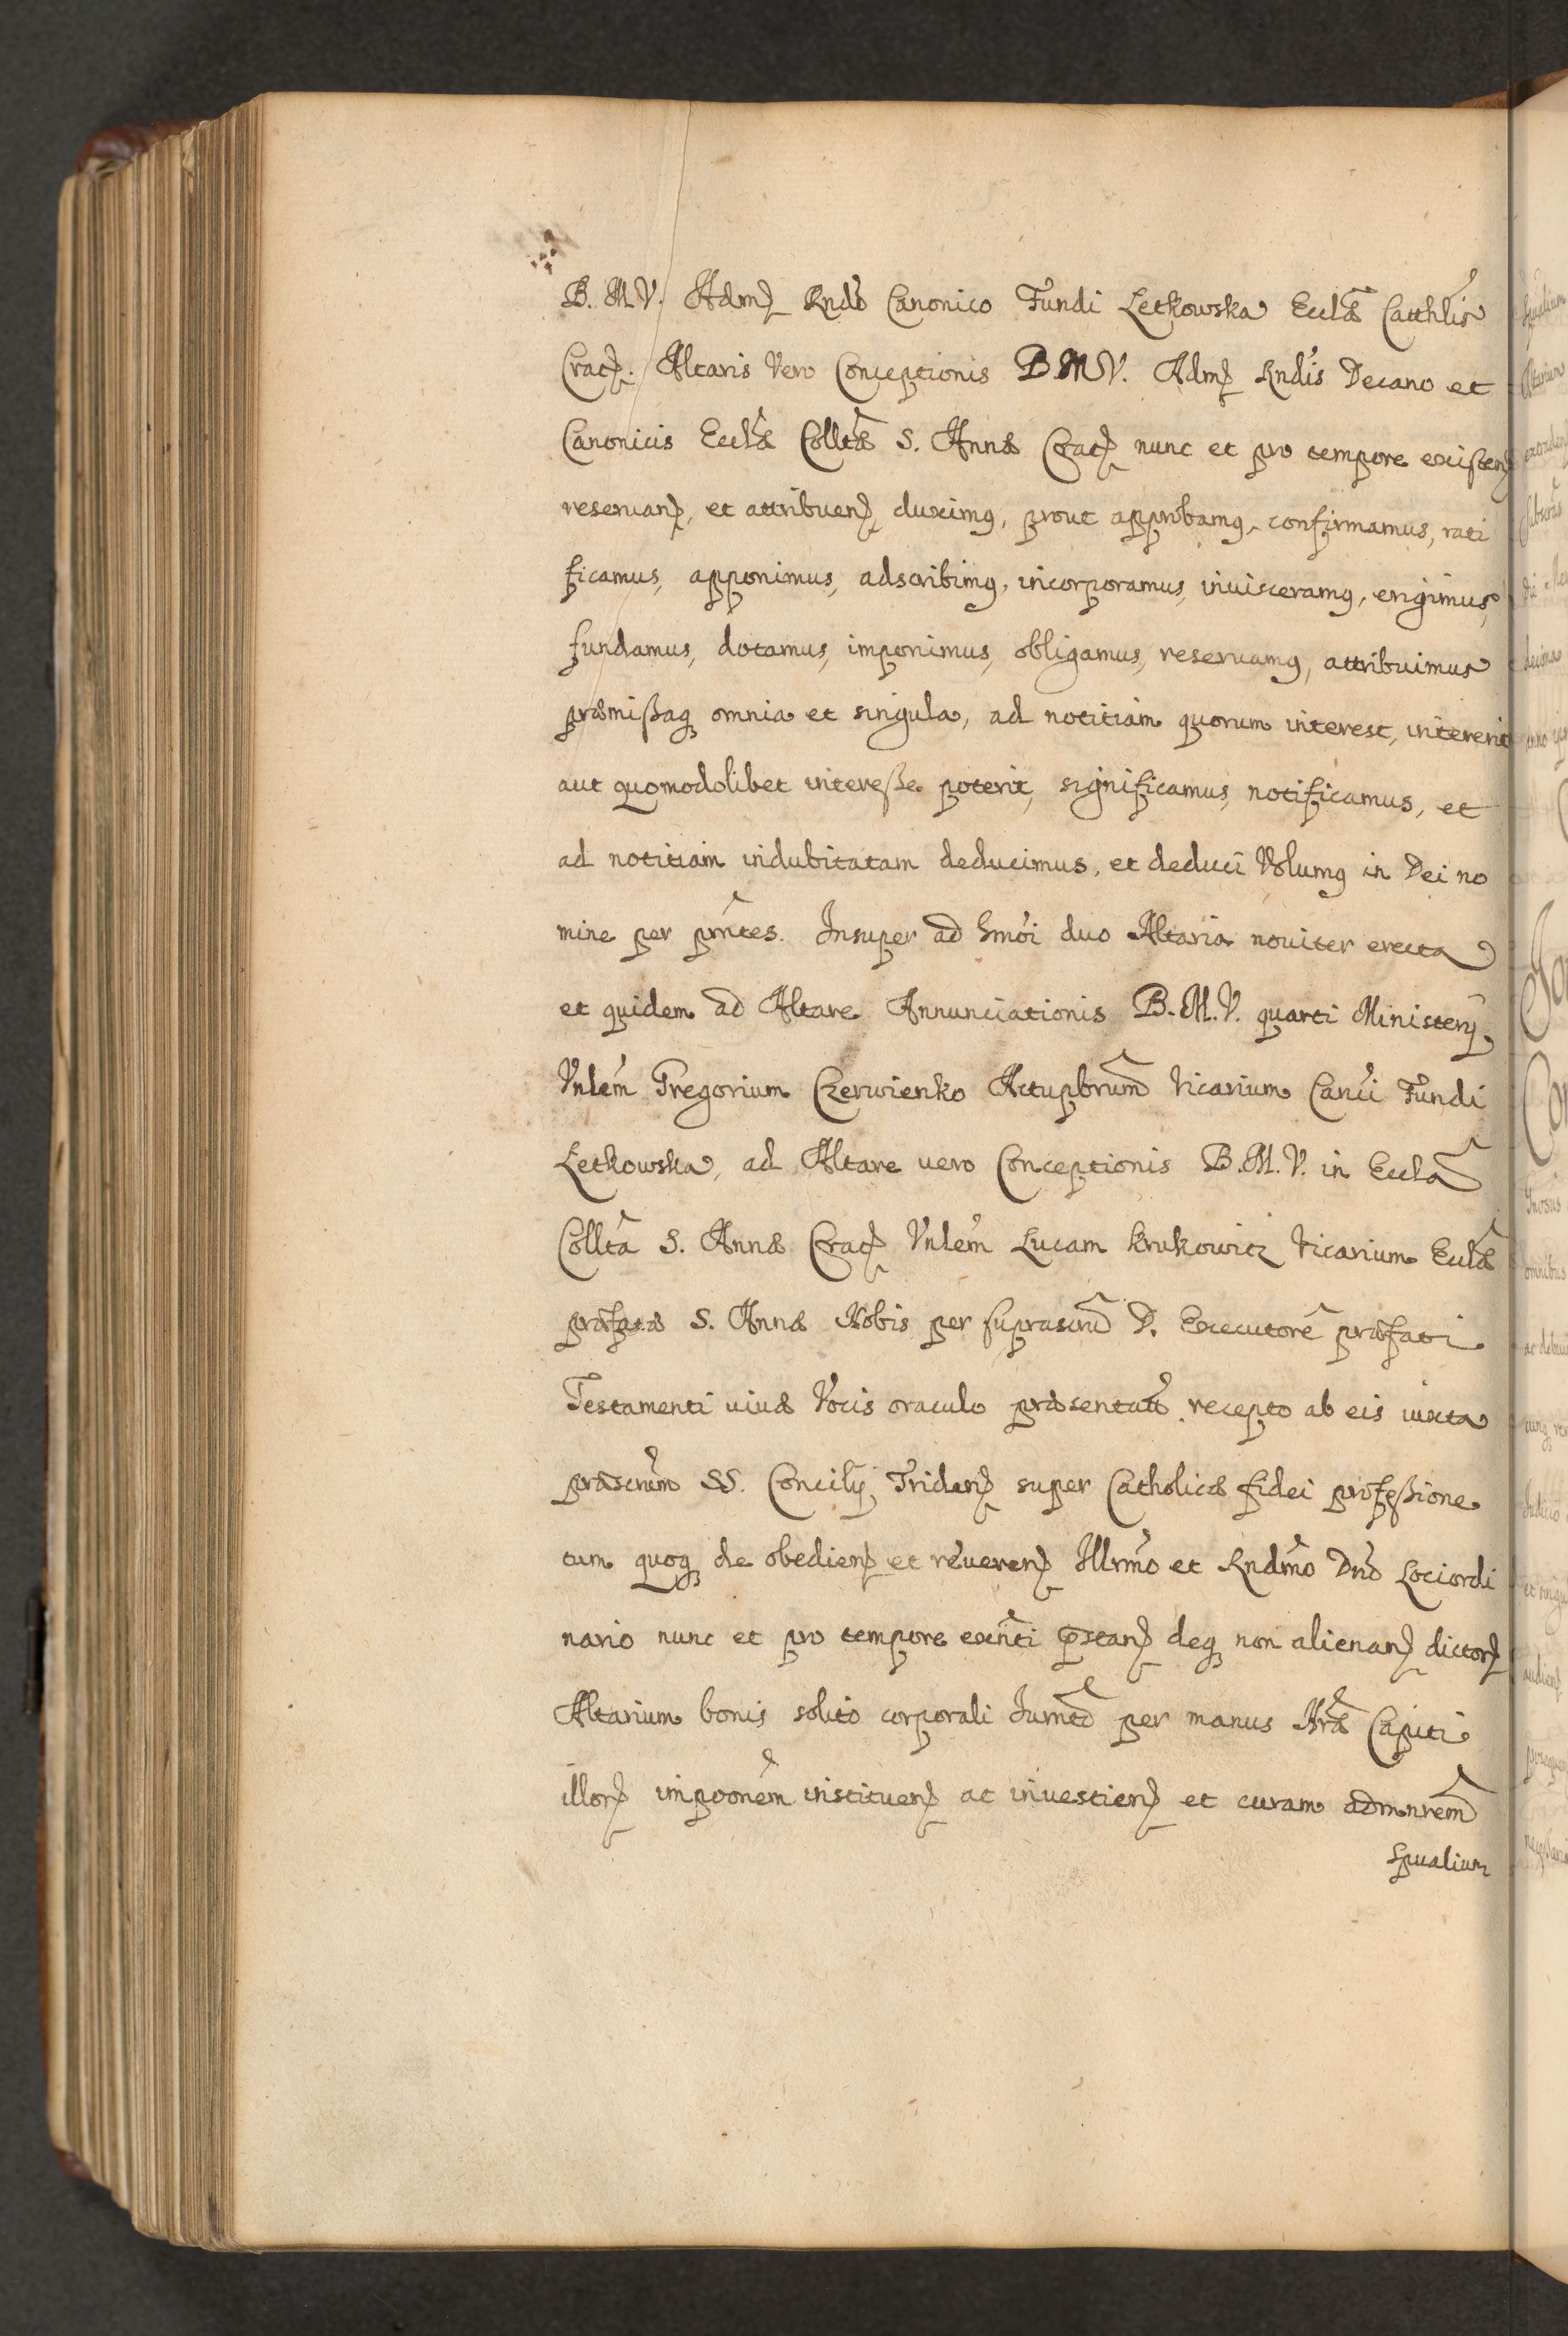 B. M. V. Adm. Rndo Canonico Fundi Letkowska Ecclæ Catthlis
Crac. Altaris Vero Conceptionis B. M V. Adm. Rndis Decano et
Canonicis Ecclæ Colltæ S. Annæ Crac. nunc et pro tempore existen.
reseruan. et attribuen. duximq, prout approbamq, confirmamus, rati
ficamus, apponimus, adscribimq, incorporamus, inuisceramq, erigimus,
fundamus, dotamus, imponimus, obligamus, reseruamq, attribuimus
præmißaq omnia et singula, ad notitiam quorum interest, intererit
aut quomodolibet intereße poterit, significamus, notificamus, et
ad notitiam indubitatam deducimus, et deduci Volumq in Dei no
mine per pñtes. Insuper ad hmõi duo Altaria nouiter erecta
et quidem ad Altare Annunciationis B. M. V. quarti Ministerÿ
Vnlem Gregorium Czerwienko Actupbrum Vicarium Canci Fundi
Letkowska, ad Altare uero Conceptionis B. M. V. in Eccla
Collta S. Annæ Crac. Vnlem Lucam Krukowicz Vicarium Ecclæ
præfatæ S. Annæ Nobis per suprascrm D. Executorẽ præfati
Testamenti uiuæ Vocis oraculo præsentatt. recepto ab eis iuxta
præscrim SS. Concilÿ Triden. super Catholicæ fidei profeßione
tum quoq de obedien. et reueren. Illrmo et Rndmo Dno Lociordi
nario nunc et pro tempore exenti præstan. deq non alienan. dictor.
Altarium bonis solito corporali Jurnto per manus Nræ Capiti
illor. impoonem instituen. ac inuestien. et curam admnrem
Spualium